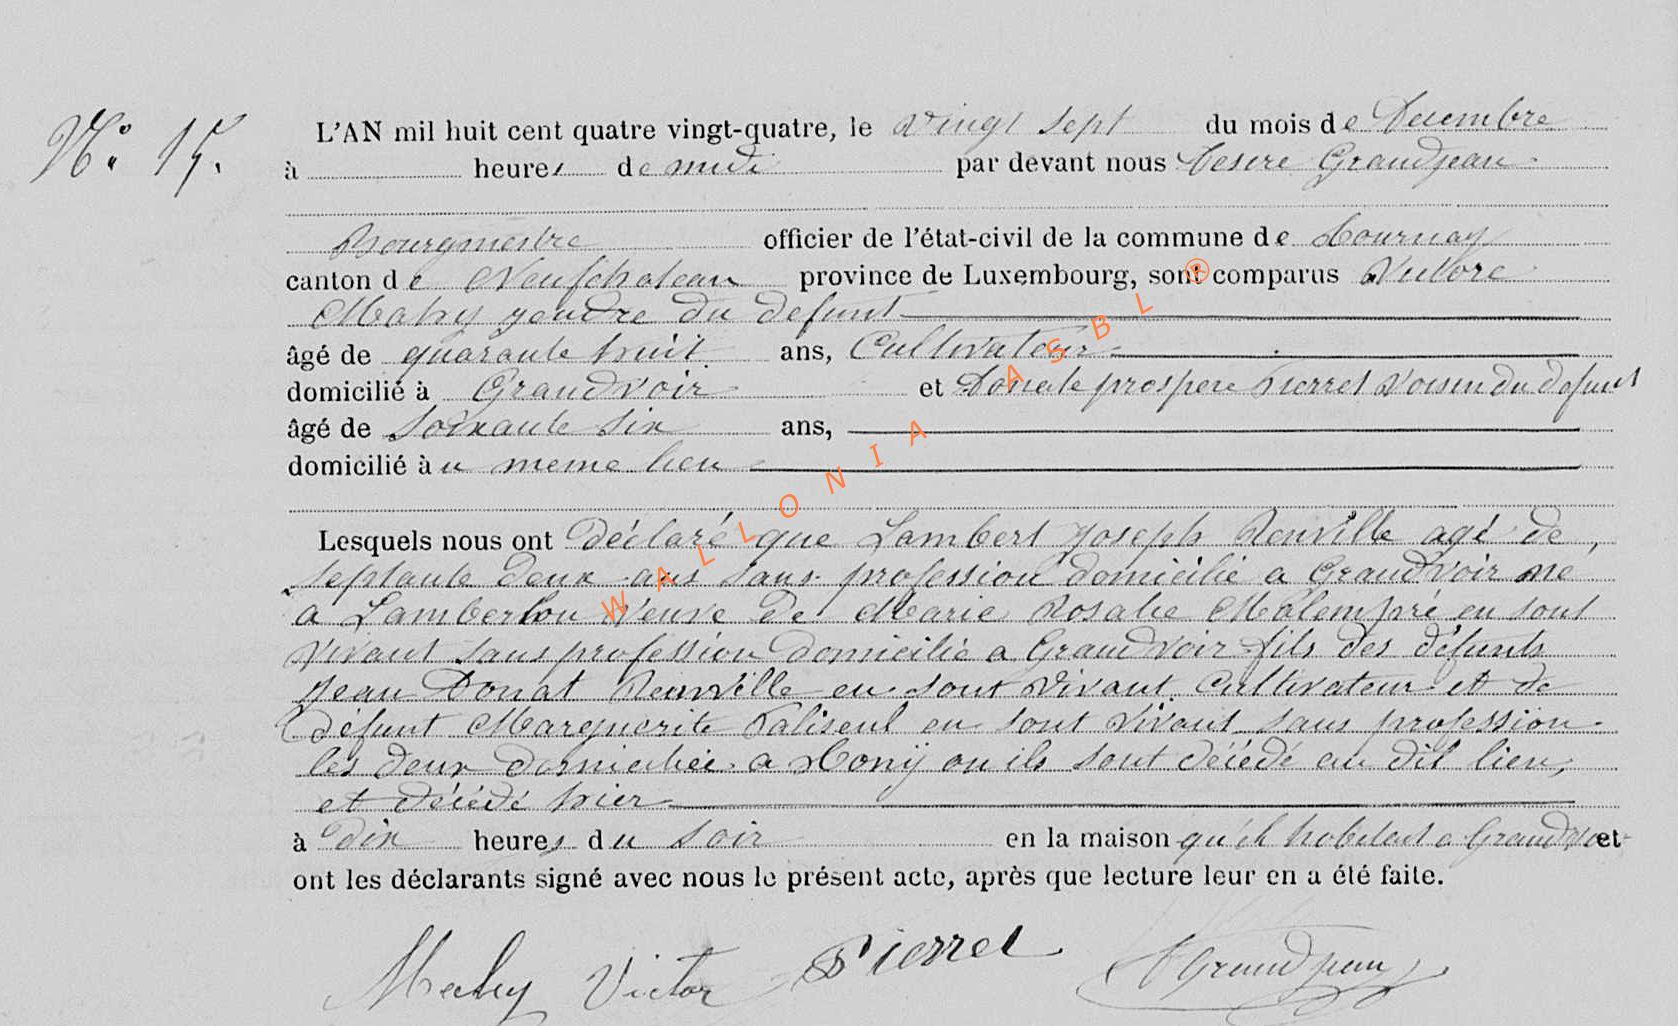 N.o 15.
L'AN mil huit cent quatre vingt-quatre, le vingt sept du mois de Decembre
à heures de midi par devant nous Desire Grandjean
Bourgmestre officier de l'état-civil de la commune de Tournay
canton de Neufchateau province de Luxembourg, sont comparus Victore
Mahy gendre du defunt
âgé de quarante huit ans, Cultivateur
domicilié à Grandvoir et Donate prospere Pierret Voisin du defunt
âgé de soixante six ans,
domicilié àu meme lieu
Lesquels nous ont déclaré que Lambert Joseph Renville agé de
septante deux ans sans profession domicilié a Grandvoir né
a Veuve de Marie Rosalie Malempré en sont
vivant sans profession domicilié a Grandvoir fils des défunts
Jean Donat Renville en sont vivant Cultivateur et de
défunt Marguerite Paliseul en sont vivant sans profession
les deux a ou ils sont décédé au dit lieu,
et décédé hier
à dix heures du soir en la maison qu'il a et
ont les déclarants signé avec nous le présent acte, après que lecture leur en a été faite.
Mahy Victor Pierret Grandjean
WALLONIA ASBL ®